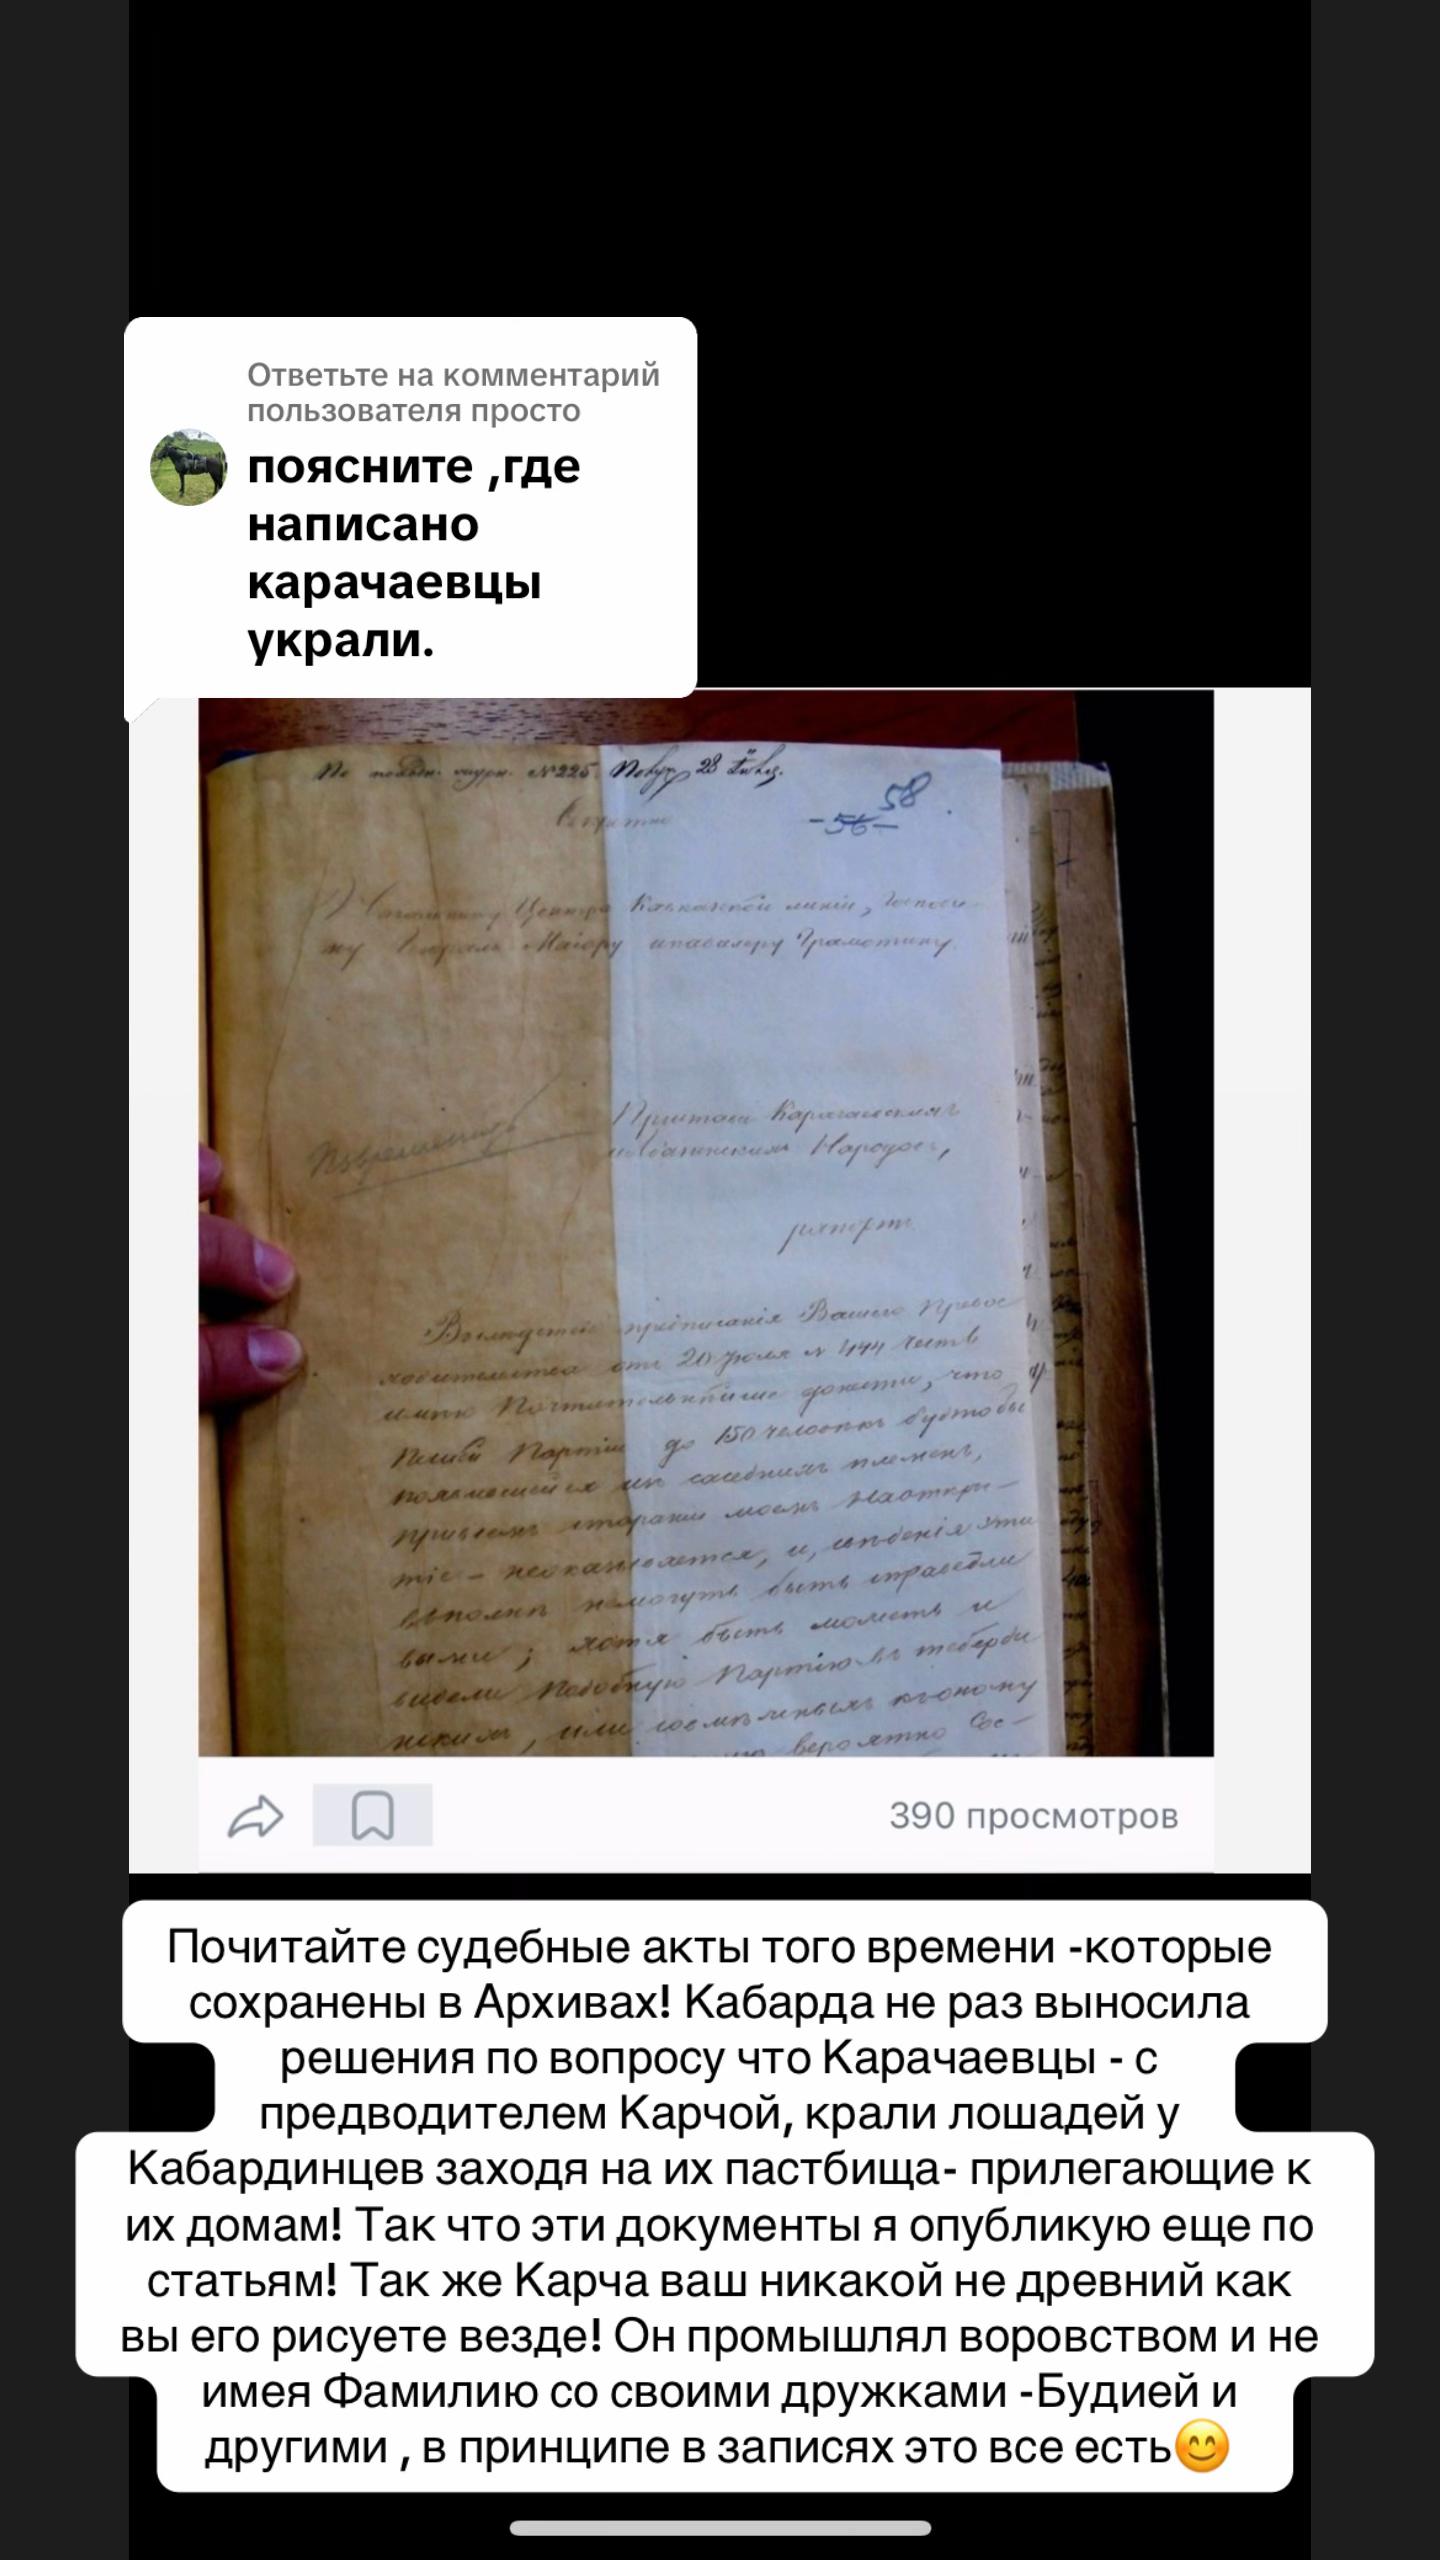 Ответьте на комментарий
пользователя просто
поясните ,где
написано
карачаевцы
украли.
№225 28
Секретно
58
-56-
Центра Кавказской линіи,
Маіору Грамотину.
Карачаевскимъ
Народом,
рапортъ
предписанія Вашего Превос
ходительства отъ 20 Іюля № 444 честь
имею Почтительнѣйше донести, что
Партіи до 150 человѣкъ будто бы
племенъ,
неоказывается, и,
вполнѣ немогутъ быть справедли
выми; хотя быть можетъ и
видели Подобную Партію въ теберди
или
вероятно Сос-
390 просмотров
Почитайте судебные акты того времени -которые
сохранены в Архивах! Кабарда не раз выносила
решения по вопросу что Карачаевцы - с
предводителем Карчой, крали лошадей у
Кабардинцев заходя на их пастбища- прилегающие к
их домам! Так что эти документы я опубликую еще по
статьям! Так же Карча ваш никакой не древний как
вы его рисуете везде! Он промышлял воровством и не
имея Фамилию со своими дружками -Будией и
другими , в принципе в записях это все есть😊